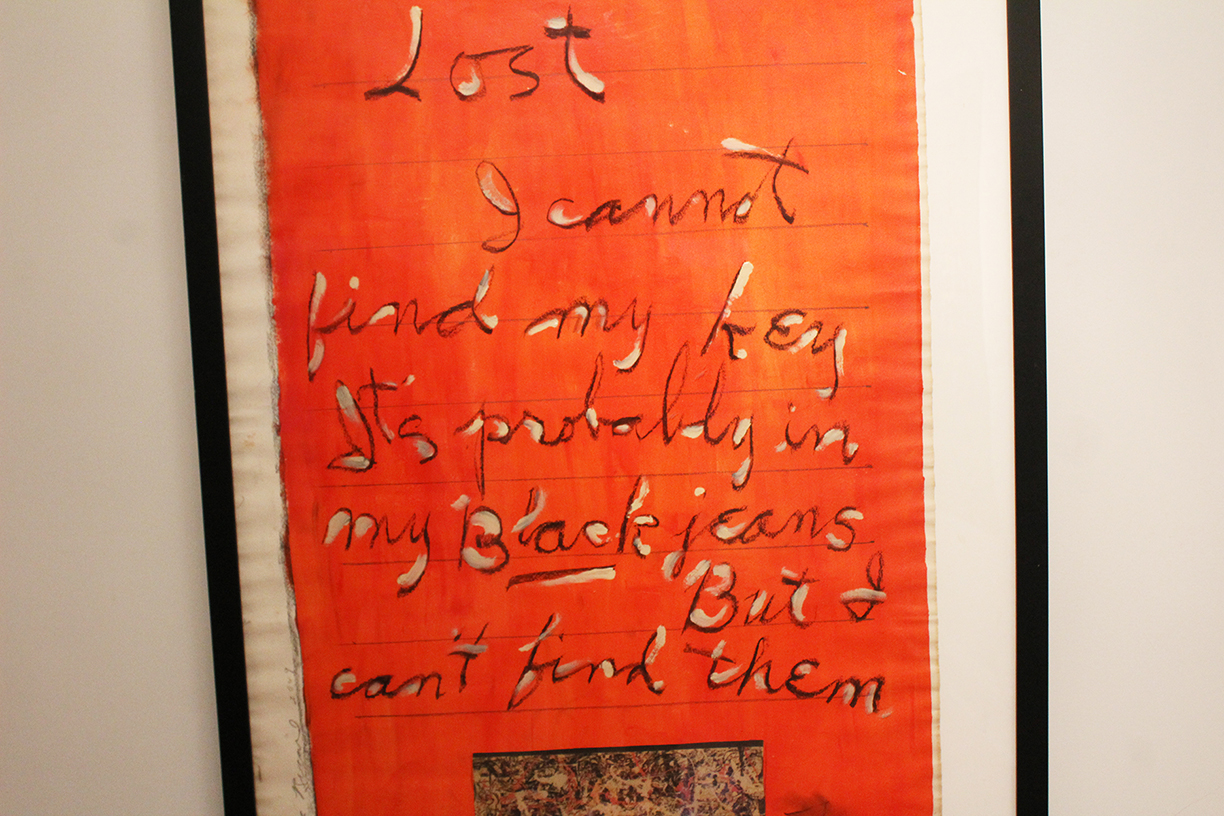 Lost
I cannot
find my key
It's probably in
my Black jeans
But I
can't find them